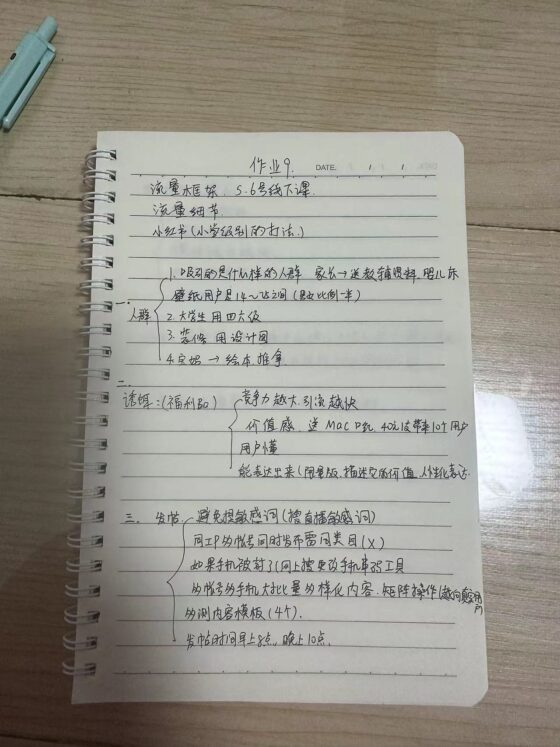 作业9.
DATE. / / /
流量框架 5.6号线下课.
流量细节
小红书(小学级别的打法.)
一. 人群
1. 吸引的是什么样的人群 家长→送教辅资料. 婴儿床
壁纸用户是14~25之间(男女比例一半)
2. 大学生 用四六级
3. 装修 用设计图
4. 宝妈 → 绘本推拿
二.
诱饵:(福利品)
竞争力越大.引流越快
价值感. 送 MAC 口红 40元成本10个用户
用户懂
能表达出来(限量版.描述它的价值 人性化表达.
三. 发帖
避免提敏感词(搜直播敏感词)
同IP多账号同时发布雷同类目(X)
如果手机被封了(网上搜更改手机串码工具
多账号多手机大批量多样化内容. 矩阵操作(
多测内容模板(4个).
发帖时间早上8点. 晚上10点.